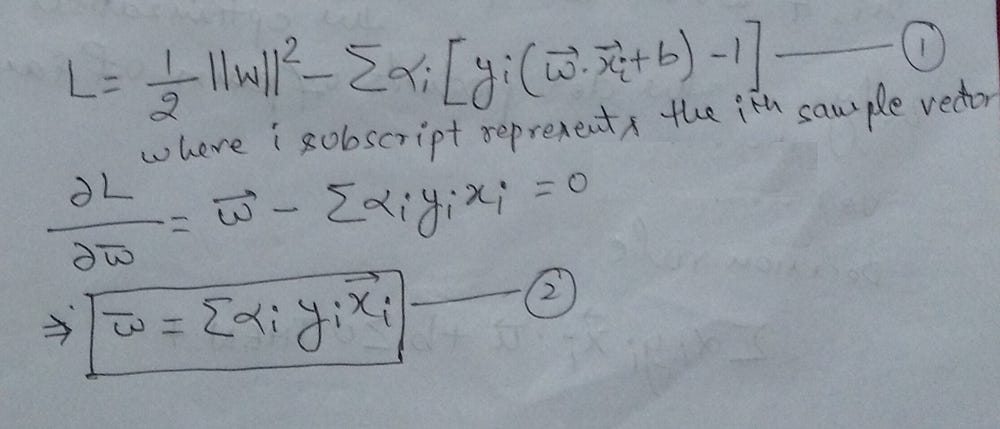 L = 1/2 ||w||² − Σαi [yi(w⃗·x⃗i + b) − 1] —— ①
where i subscript represents the ith sample vector
∂L/∂w̅ = w⃗ − Σαiyixi = 0
⇒ w̅ = Σαi yix⃗i —— ②